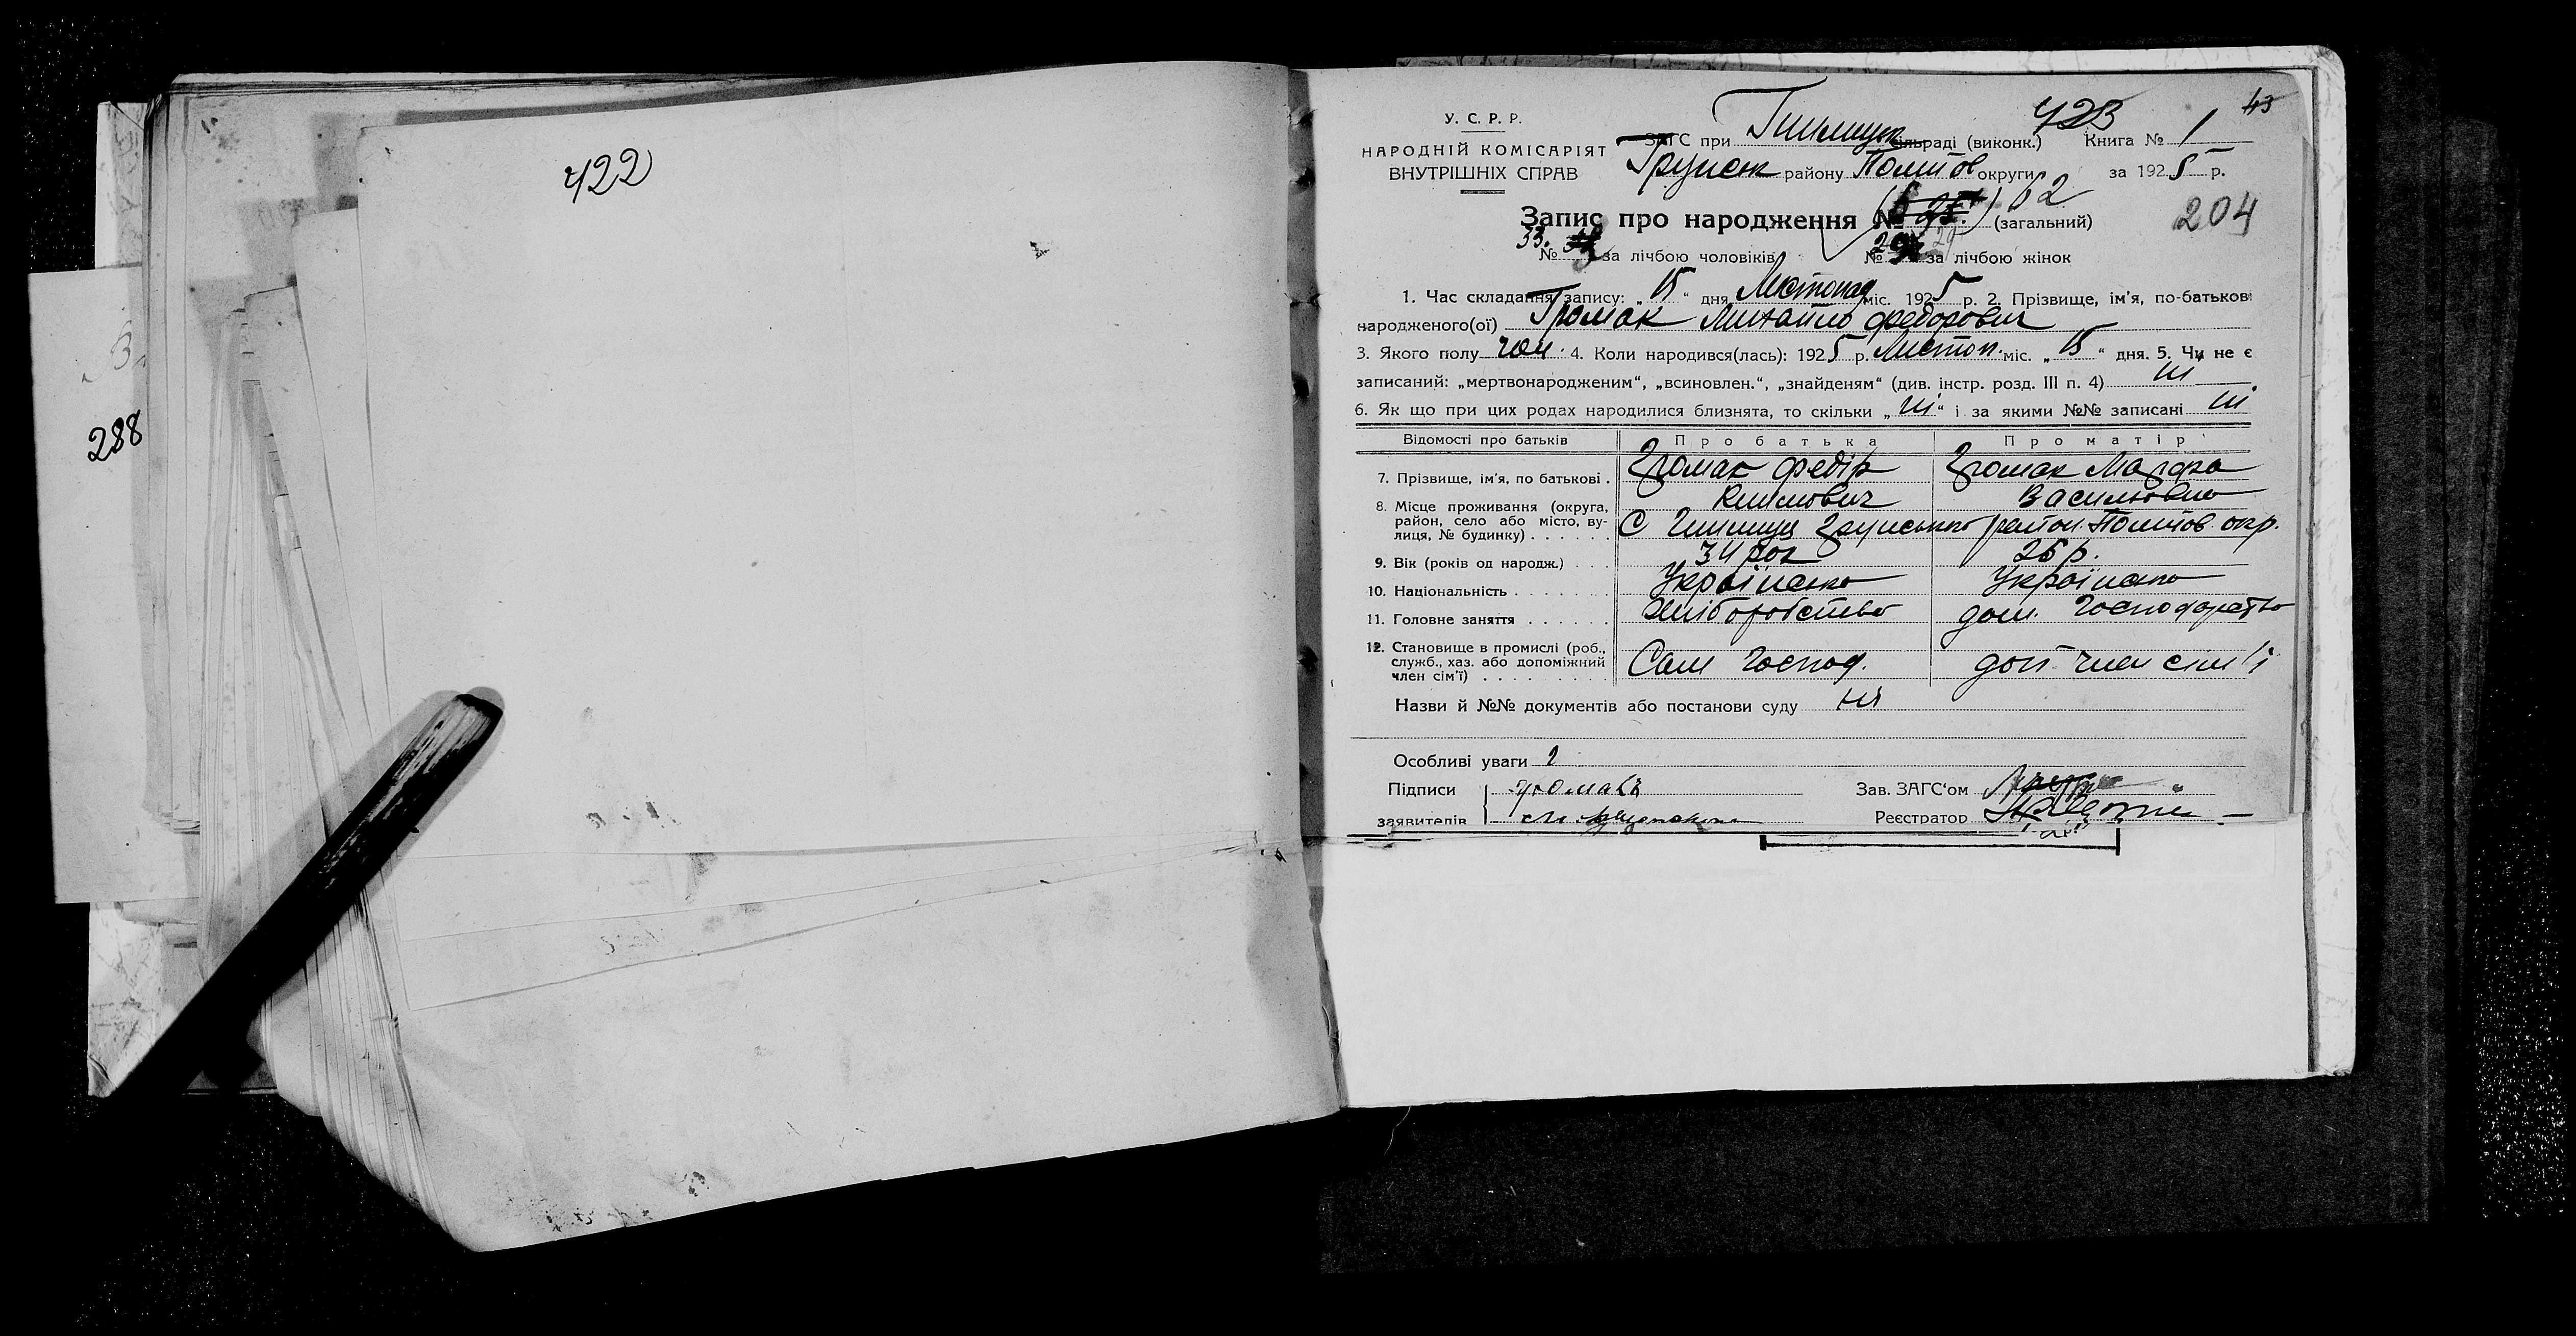 422
288
423
43
У. С. Р. Р.
НАРОДНІЙ КОМІСАРІЯТ
ВНУТРІШНІХ СПРАВ
ЗАГС при сільраді (виконк.) Книга № 1
Грунськ району Полтов округи за 1925 р.
Запис про народження № 62 (загальний)
204
33. № за лічбою чоловіків № 29 за лічбою жінок
1. Час складання запису: „15“ дня Листопад міс. 1925 р. 2. Прізвище, ім'я, по-батькові
народженого(ої) Громак Михайло Федорович
3. Якого полу чол. 4. Коли народився(лась): 1925 р. Листоп. міс. „15“ дня. 5. Чи не є
записаний: „мертвонародженим“, „всиновлен.“, „знайденям“ (див. інстр. розд. III п. 4) ні
6. Як що при цих родах народилися близнята, то скільки „ні“ і за якими №№ записані ні
Відомості про батьків Про батька Про матір
7. Прізвище, ім'я, по батькові . Громак Федір Громак Марфа
Климович Василівна
8. Місце проживання (округа,
район, село або місто, ву-
лиця, № будинку) . . . . . . С Грунського район. Полтов. окр.
9. Вік (років од народж.) . . . 34 рок 26 р.
10. Національність . . . . . . . Українська Українська
11. Головне заняття . . . . . . Хліборобство дом. господарство
12. Становище в промислі (роб.,
служб., хаз. або допоміжний
член сім'ї) . . . . . . . . . Сам господ. доп член сім'ї
Назви й №№ документів або постанови суду ні
Особливі уваги
Підписи Громакъ Зав. ЗАГС'ом
заявителів Реєстратор